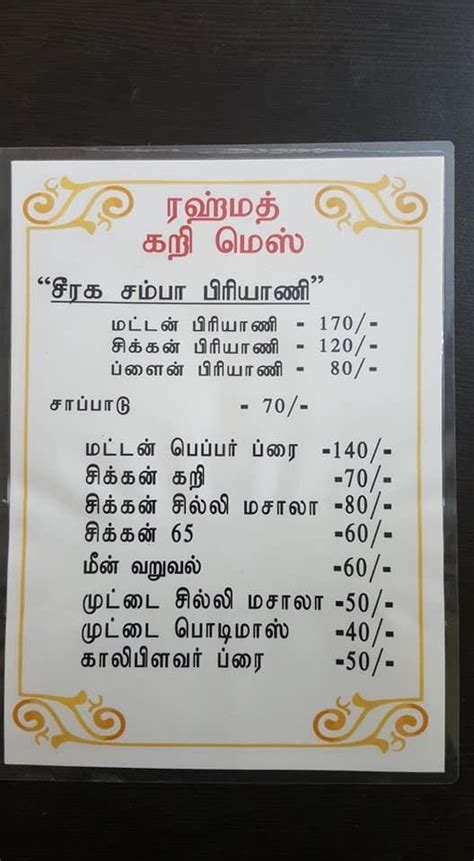 ரஹ்மத்
கறி மெஸ்
“சீரக சம்பா பிரியாணி”
மட்டன் பிரியாணி - 170/-
சிக்கன் பிரியாணி - 120/-
ப்ளைன் பிரியாணி - 80/-
சாப்பாடு - 70/-
மட்டன் பெப்பர் ப்ரை -140/-
சிக்கன் கறி -70/-
சிக்கன் சில்லி மசாலா -80/-
சிக்கன் 65 -60/-
மீன் வறுவல் -60/-
முட்டை சில்லி மசாலா -50/-
முட்டை பொடிமாஸ் -40/-
காலிபிளவர் ப்ரை -50/-